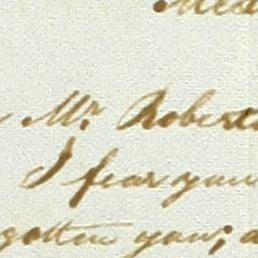 Med
Mr. Robert
I fear you
gotten you; a